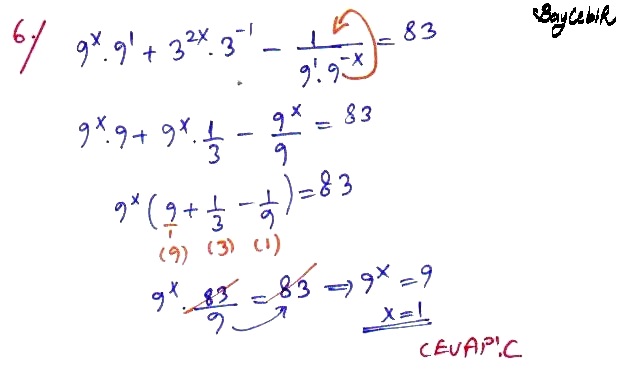 BayCebiR
6./ 9^x . 9^1 + 3^{2x} . 3^{-1} - \frac{1}{9^1 . 9^{-x}} = 83
9^x . 9 + 9^x . \frac{1}{3} - \frac{9^x}{9} = 83
9^x ( \frac{9}{1} + \frac{1}{3} - \frac{1}{9} ) = 83
(9) (3) (1)
9^x . \frac{83}{9} = 83 ⇒ 9^x = 9
x = 1
CEVAP: C